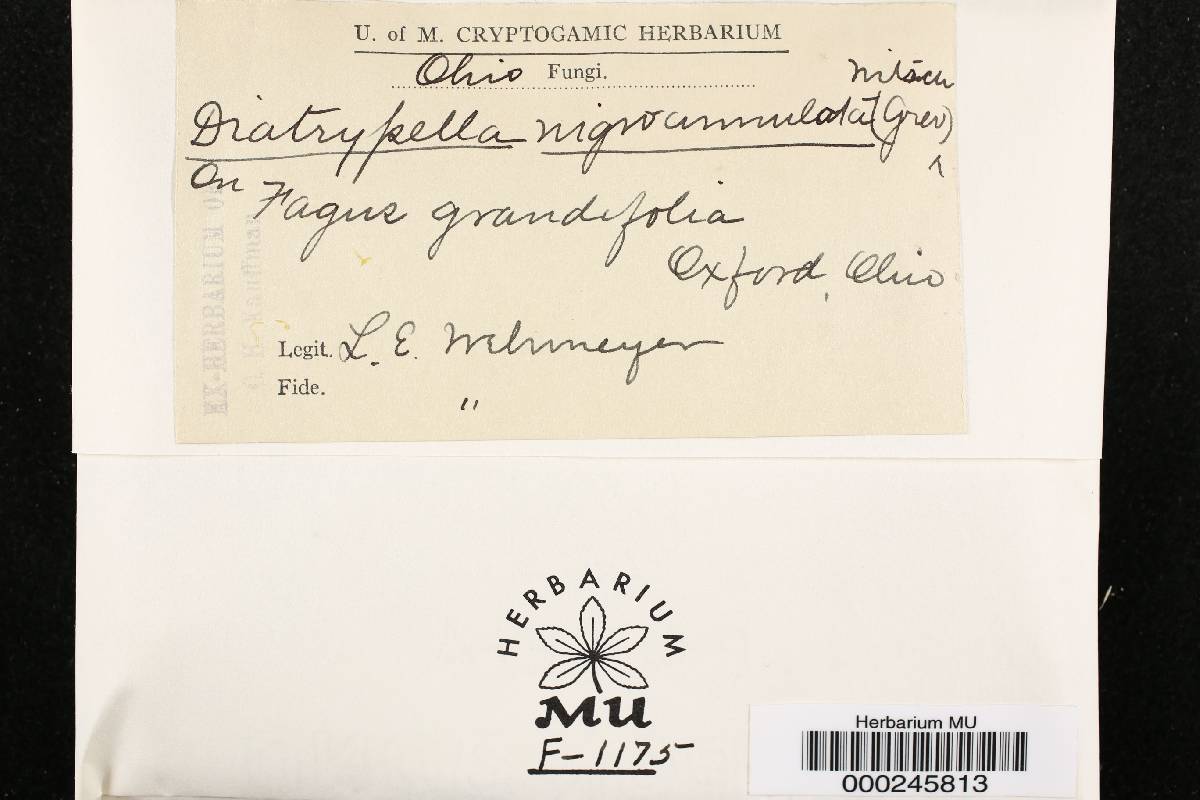 U. of M. CRYPTOGAMIC HERBARIUM
Ohio Fungi.
Diatrypella nigroannulata (Grev) Nitsch
On Fagus grandifolia
Oxford, Ohio
Legit. L. E. Wehmeyer
Fide. "
EX-HERBARIUM OF
C. H. Kauffman
HERBARIUM
MU
F-1175
Herbarium MU
000245813